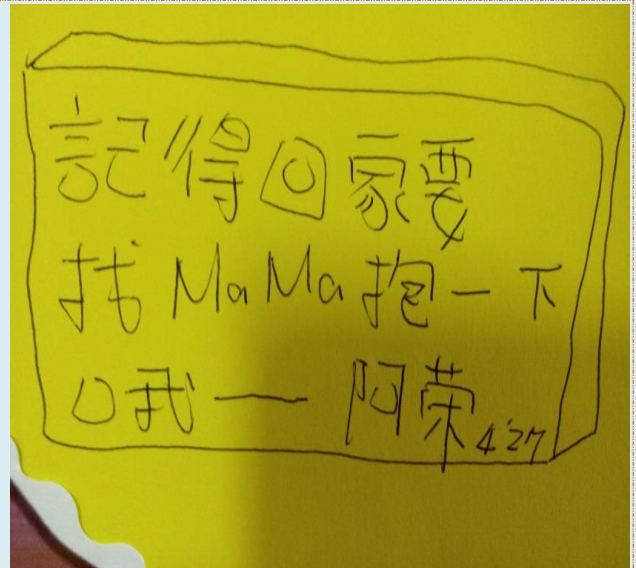 記得回家要
找MaMa抱一下
哦——阿荣4'27